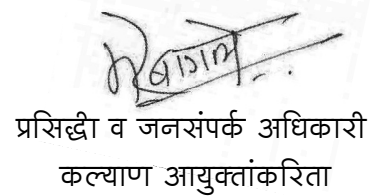 प्रसिद्धी व जनसंपर्क अधिकारी
कल्याण आयुक्तांकरिता